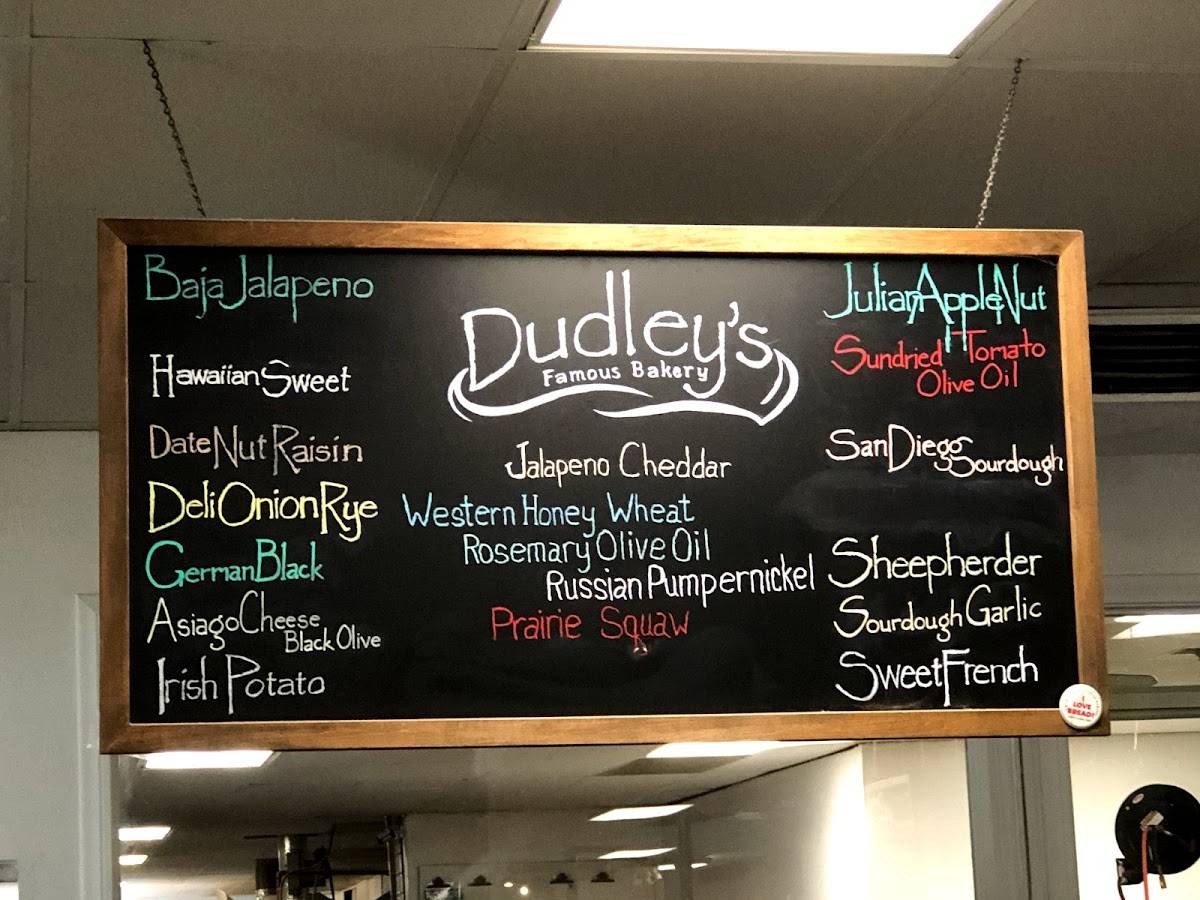 Baja Jalapeno
Hawaiian Sweet
Date Nut Raisin
Deli Onion Rye
German Black
Asiago Cheese
Black Olive
Irish Potato
Dudley's
Famous Bakery
Jalapeno Cheddar
Western Honey Wheat
Rosemary Olive Oil
Russian Pumpernickel
Prairie Squaw
Julian Apple Nut
Sundried Tomato
Olive Oil
San Diego Sourdough
Sheepherder
Sourdough Garlic
Sweet French
I
LOVE
BREAD!